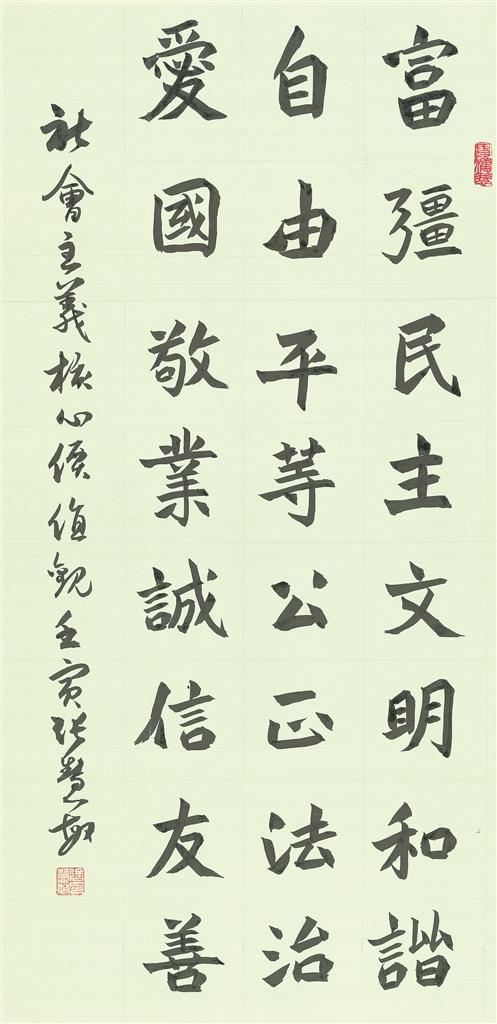 富彊民主文明和諧
自由平等公正法治
愛國敬業誠信友善
社會主義核心價值觀壬寅張慧敏